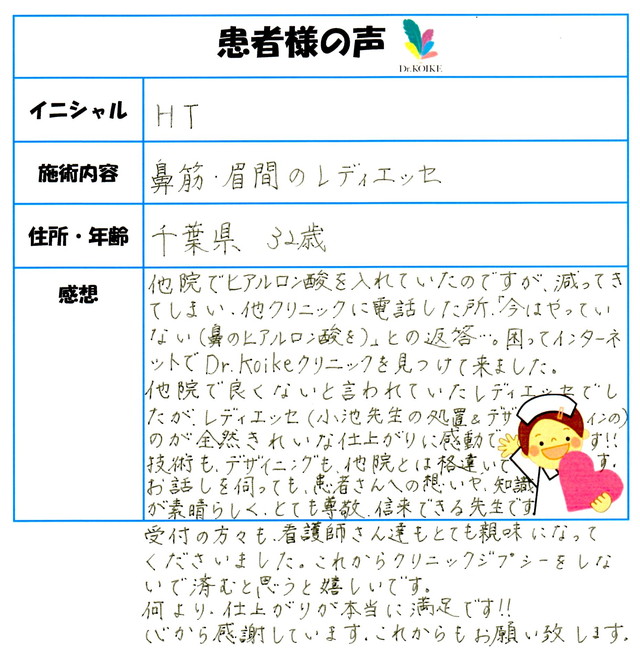 患者様の声
Dr.KOIKE
イニシャル HT
施術内容 鼻筋・眉間のレディエッセ
住所・年齢 千葉県 32歳
感想
他院でヒアルロン酸を入れていたのですが、減ってき
てしまい、他クリニックに電話した所、「今はやってい
ない(鼻のヒアルロン酸を)」との返答…。困ってインターネ
ットでDr.Koikeクリニックを見つけて来ました。
他院で良くないと言われていたレディエッセでし
たが、レディエッセ(小池先生の処置&デザインの)
のが全然きれいな仕上がりに感動で す!!
技術も、デザイニングも、他院とは格違いで す。
お話しを伺っても、患者さんへの想いや、知識
が素晴らしく、とても尊敬、信来できる先生です
受付の方々も、看護師さん達もとても親味になって
くださいました。これからクリニックジプシーをしな
いで済むと思うと嬉しいです。
何より、仕上がりが本当に満足です!!
心から感謝しています。これからもお願い致します。